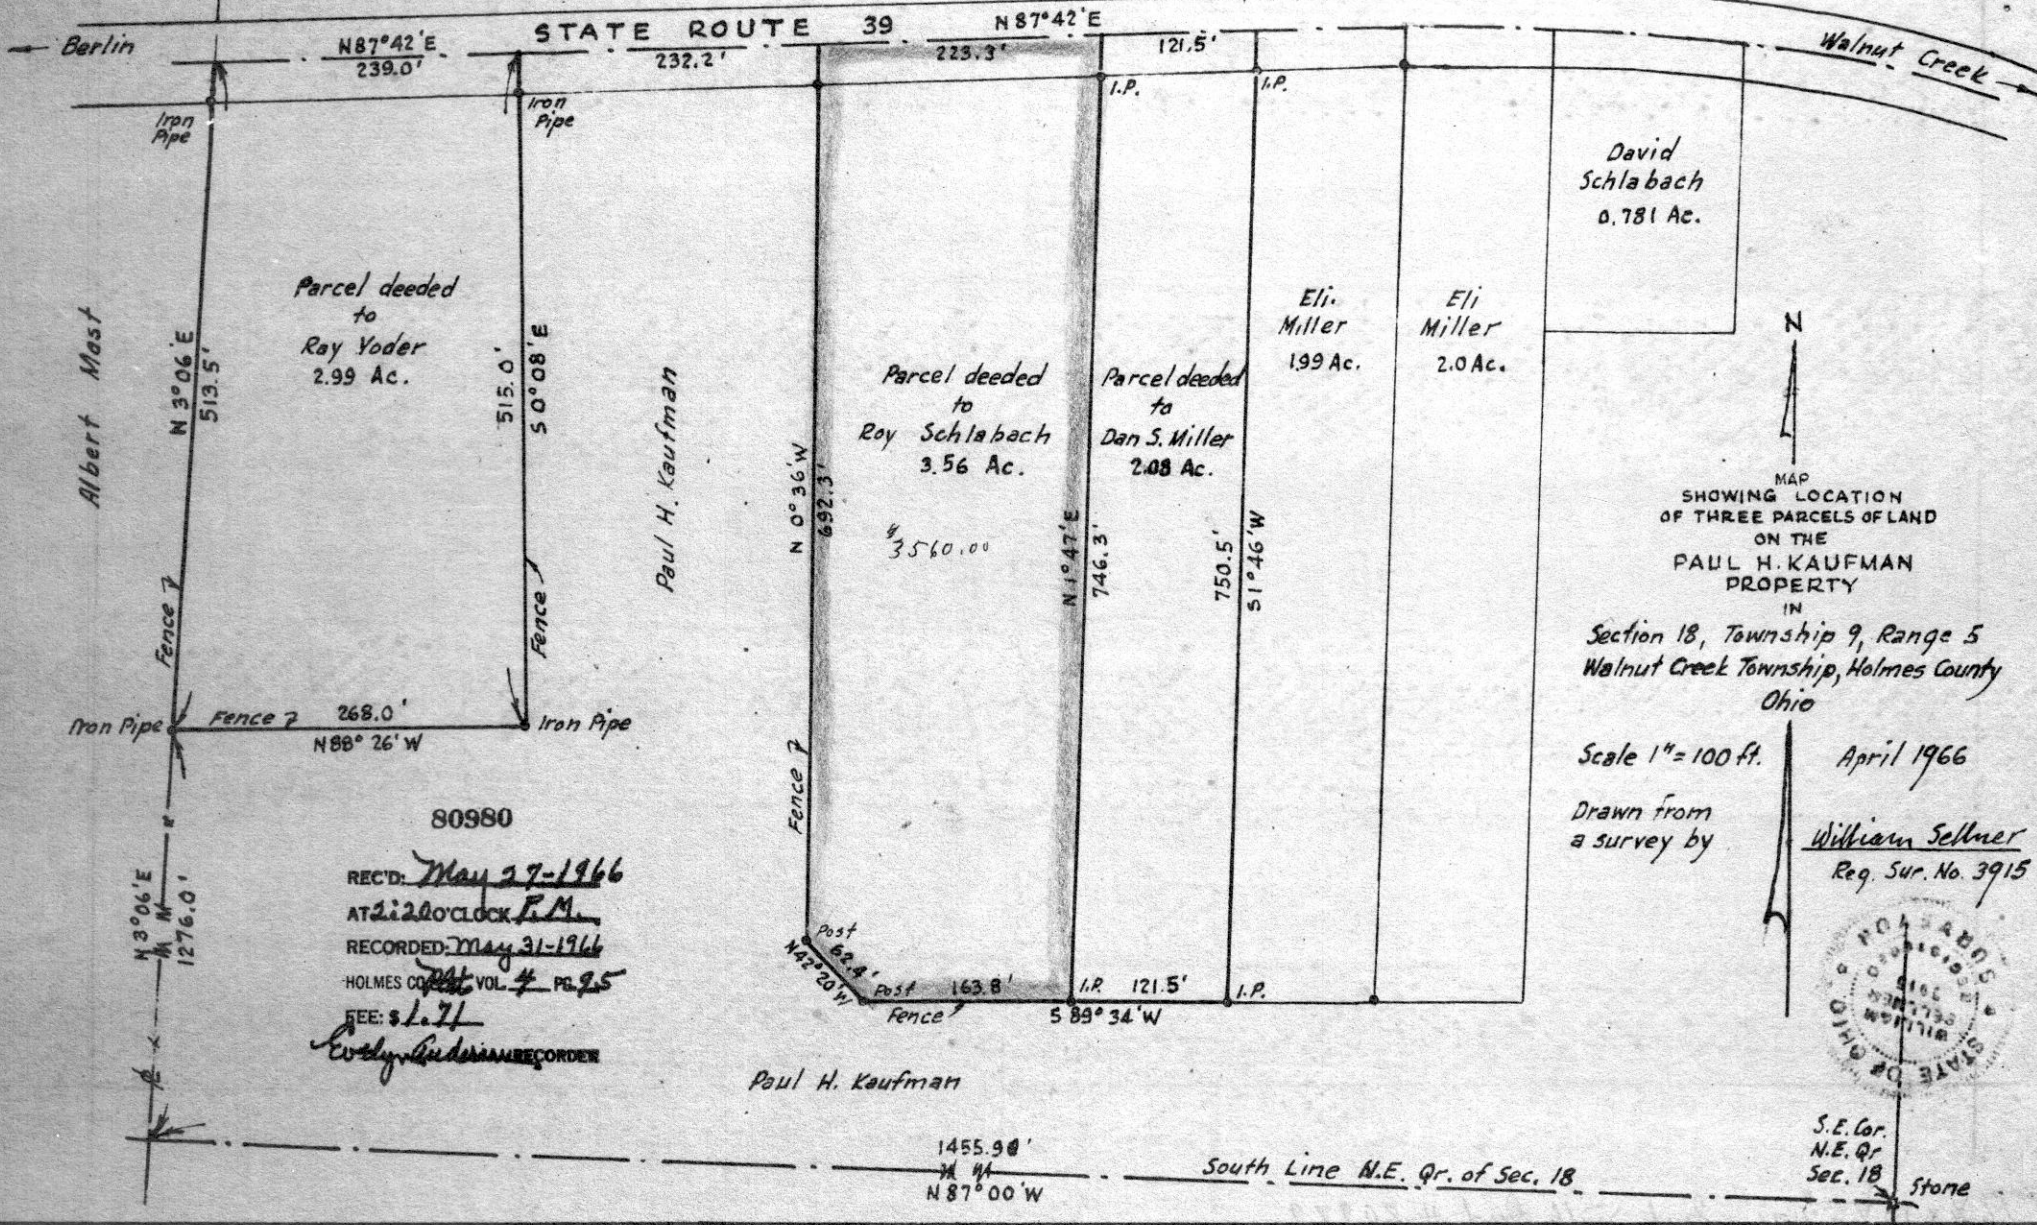 STATE ROUTE 39
N87°42'E
Berlin
N87°42'E
239.0'
232.2'
223.3'
121.5'
Walnut Creek
Iron
Pipe
Iron
Pipe
I.P.
I.P.
David
Schlabach
0.781 Ac.
Albert Mast
N 3°06'E
513.5'
Parcel deeded
to
Ray Yoder
2.99 Ac.
515.0'
S 0°08'E
Paul H. Kaufman
N 0°36'W
692.3'
Parcel deeded
to
Roy Schlabach
3.56 Ac.
$3560.00
N 1°47'E
746.3'
Parcel deeded
to
Dan S. Miller
2.08 Ac.
750.5'
S1°46'W
Eli.
Miller
1.99 Ac.
Eli
Miller
2.0 Ac.
N
MAP
SHOWING LOCATION
OF THREE PARCELS OF LAND
ON THE
PAUL H. KAUFMAN
PROPERTY
IN
Section 18, Township 9, Range 5
Walnut Creek Township, Holmes County
Ohio
Scale 1"=100 ft.
April 1966
Drawn from
a survey by
William Sellner
Reg. Sur. No. 3915
Fence
Fence
Fence
Iron Pipe
Fence
268.0'
N88°26'W
Iron Pipe
80980
REC'D: May 27-1966
AT 2:20 O'CLOCK P.M.
RECORDED: May 31-1966
HOLMES CO. Plat VOL. 4 PG. 95
FEE: $1.71
Evelyn RECORDER
N3°06'E
1276.0'
Post
62.4'
N42°20'W
Post
163.8'
Fence
I.P.
121.5'
I.P.
S 89°34'W
Paul H. Kaufman
1455.90'
N87°00'W
South Line N.E. Qr. of Sec. 18
S.E. Cor.
N.E. Qr
Sec. 18
Stone
STATE OF OHIO
REGISTERED
SURVEYOR
WILLIAM
SELLNER
3915